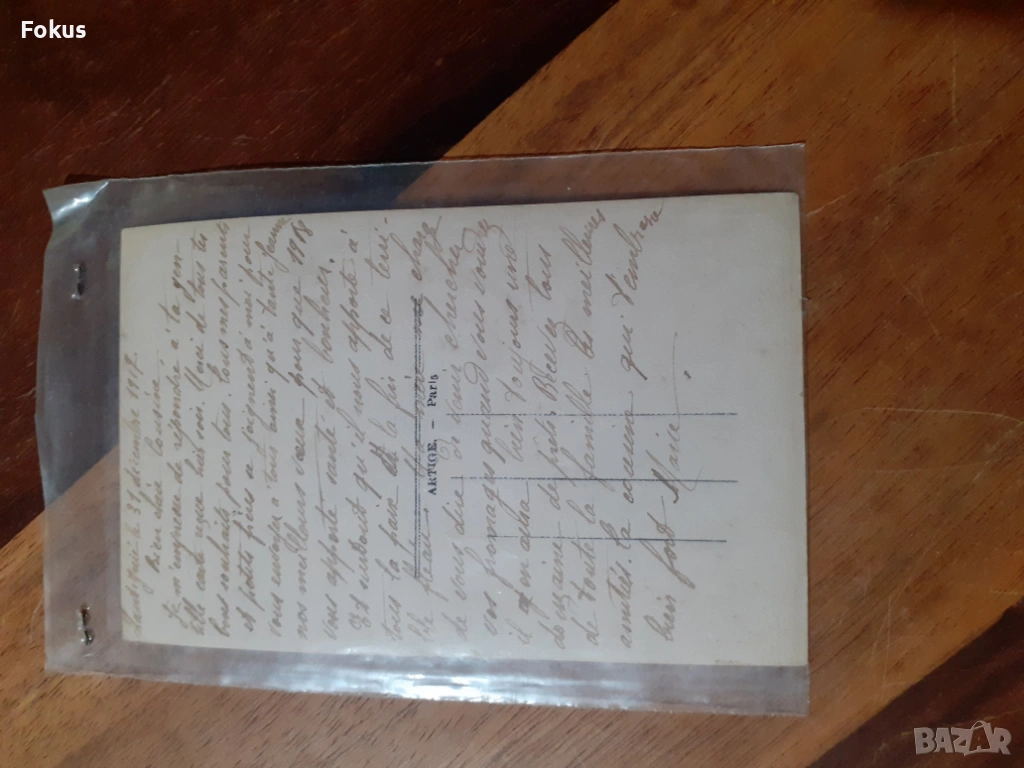 Fokus
le 31 décembre 1917.
Bien chère Cousine
Je m'empresse de répondre à ta gen-
tille carte reçue hier soir. Merci de tous tes
bons souhaits pour tous. Tous mes parents
et petits frères se joignent à moi pour
vous envoyer à tous ainsi qu'à tante
nos meilleurs vœux pour que 1918
vous apporte santé et bonheur.
Et surtout qu'il nous apporte à
tous la paix et la fin de ce terri-
ble fléau. charge
de vous dire chercher
vos fromages quand vous voudrez
il y en aura bien toujours une
douzaine de prêts. Recevez tous
de toute la famille les meilleures
amitiés. Ta cousine qui t'embrasse
bien fort Marie
ARTIGE, — Paris
BAZAR